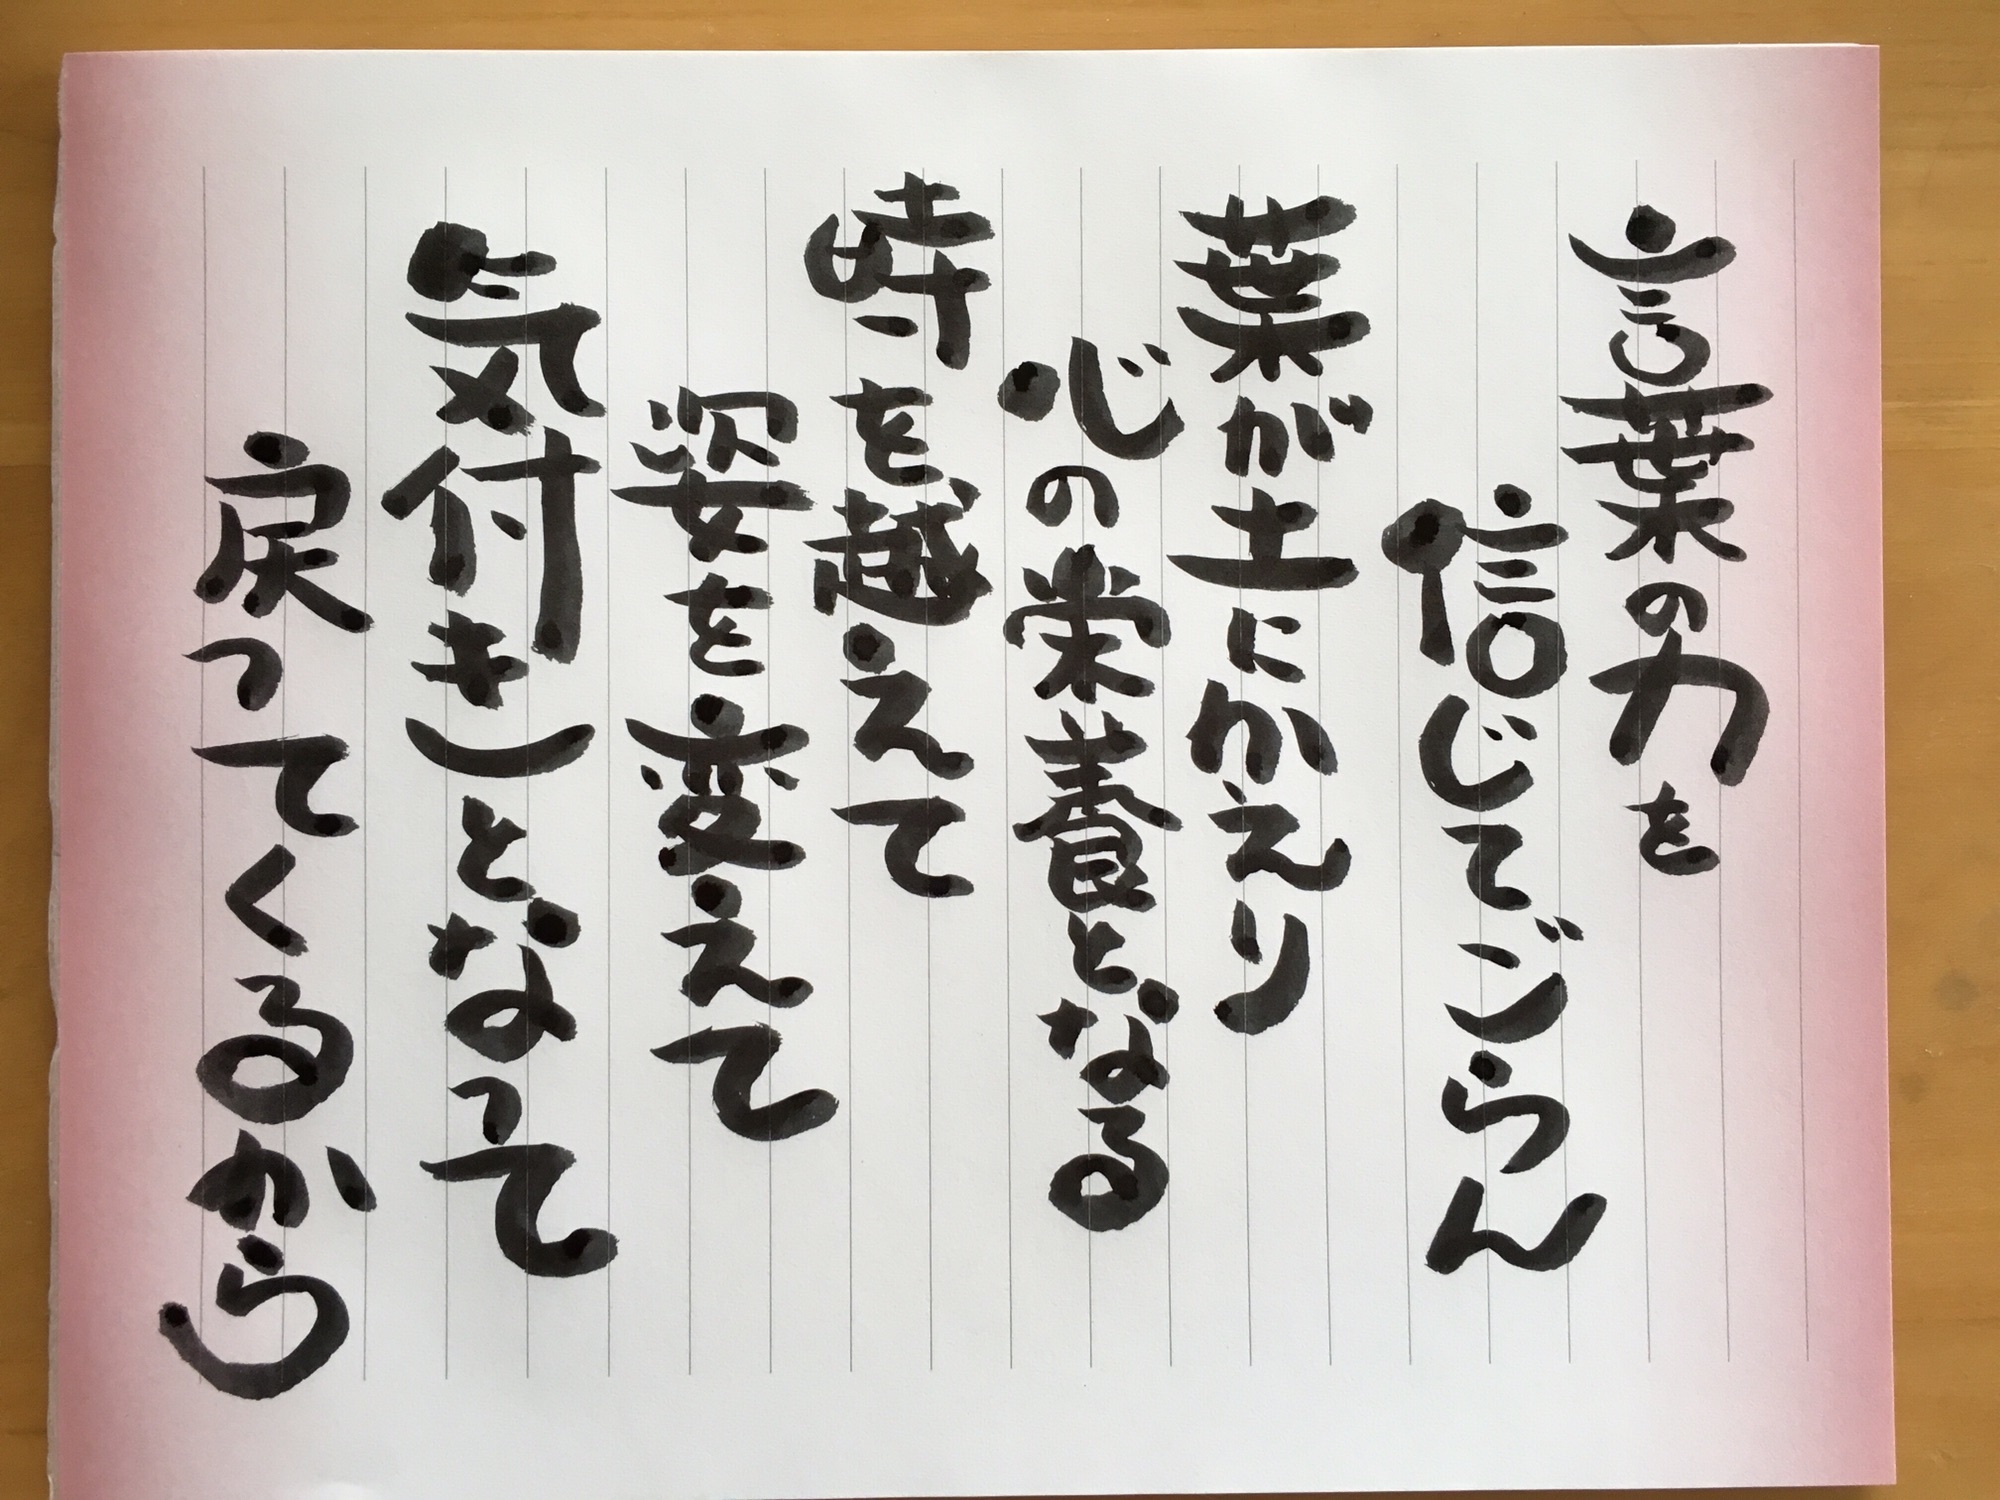 言葉の力を
信じてゴらん
葉が土にかえり
心の栄養となる
時を越えて
姿を変えて
気付きとなって
戻ってくるから